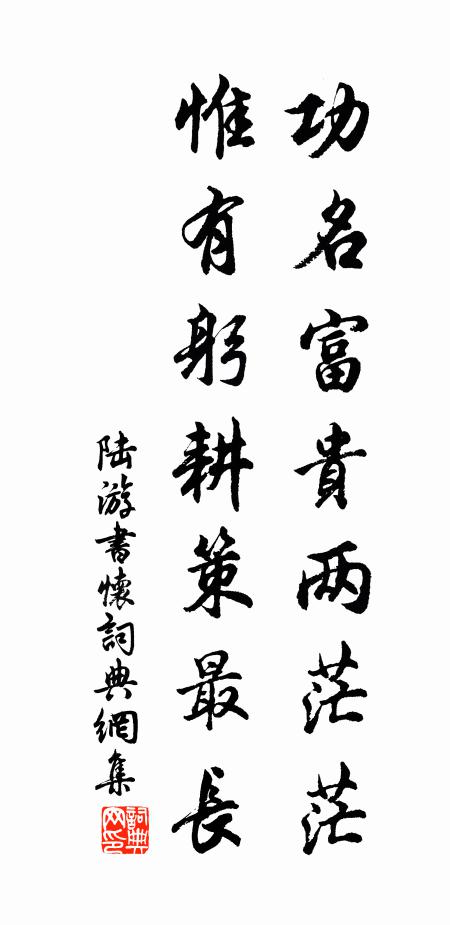 功名富貴两茫茫
惟有躬耕策最長
陆游書懷詞典網集
詞典网印